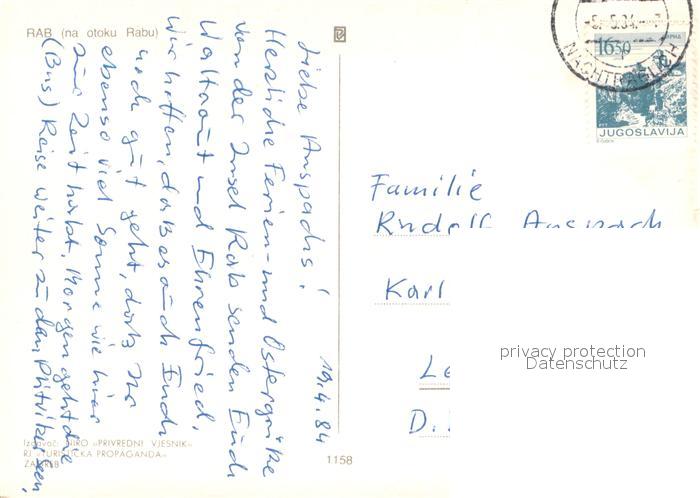 RAB (na otoku Rabu)
19.4.84
Liebe Anspachs!
Herzliche Ferien- und Ostergrüße
von der Insel Rab senden Euch
Waltraut und Ehrenfried.
Wir hoffen, daß es auch Euch
noch gut geht, daß Ihr
ebenso viel Sonne wie hier
zur Zeit habt. Morgen geht die
(Bus) Reise weiter zu den Plitvicer Seen.
Izdavač: NIRO »PRIVREDNI VJESNIK«
RJ »TURISTIČKA PROPAGANDA«
ZAGREB
1158
-5.5.84.-7
NACHTRÄGLICH
16.50
JUGOSLAVIJA
Familie
Rudolf Anspach
Karl
Le
D.
privacy protection
Datenschutz